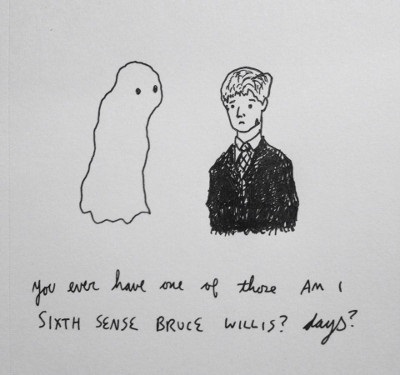 you ever have one of those AM I
SIXTH SENSE BRUCE WILLIS? days?